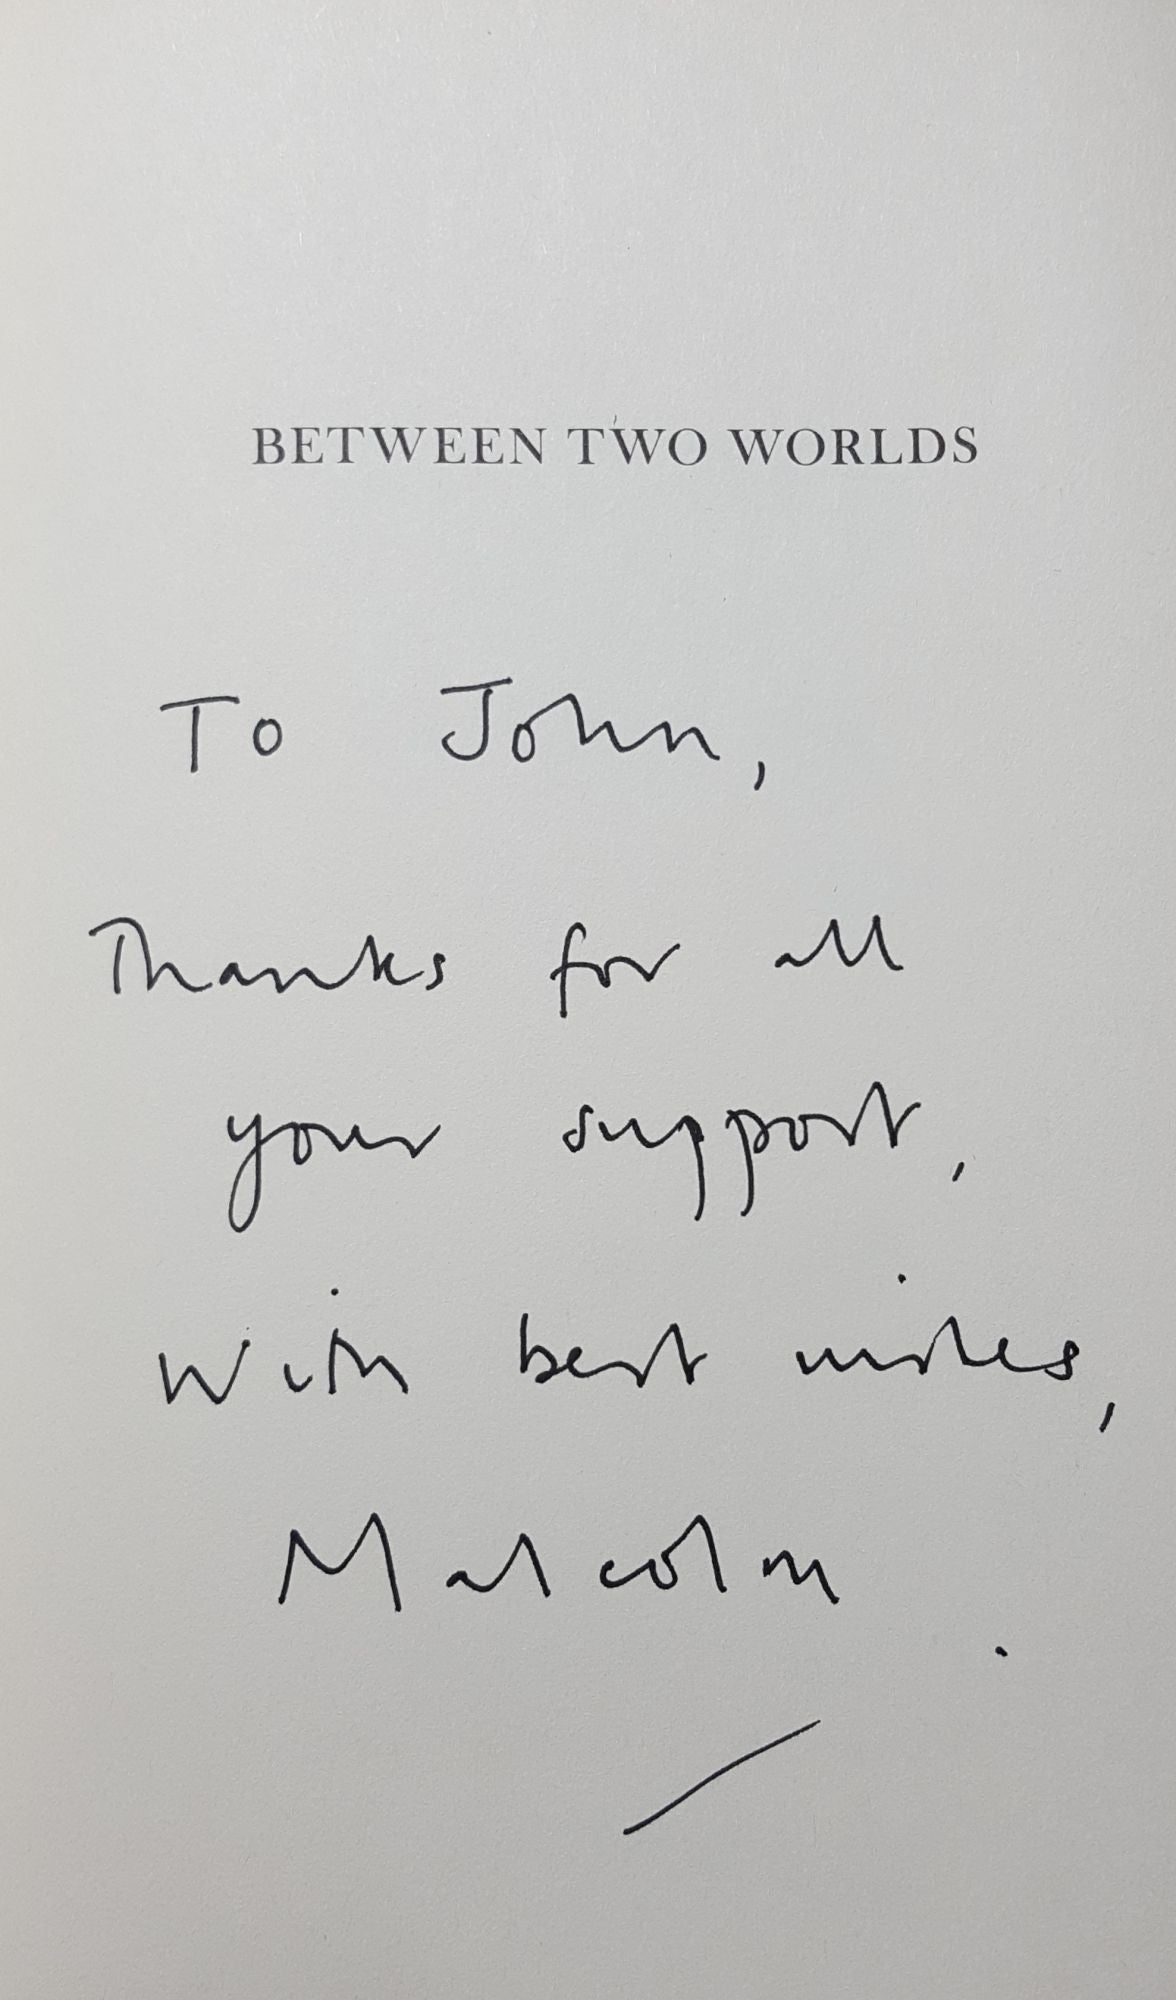 BETWEEN TWO WORLDS
To John,
Thanks for all
your support,
With best wishes,
Malcolm.